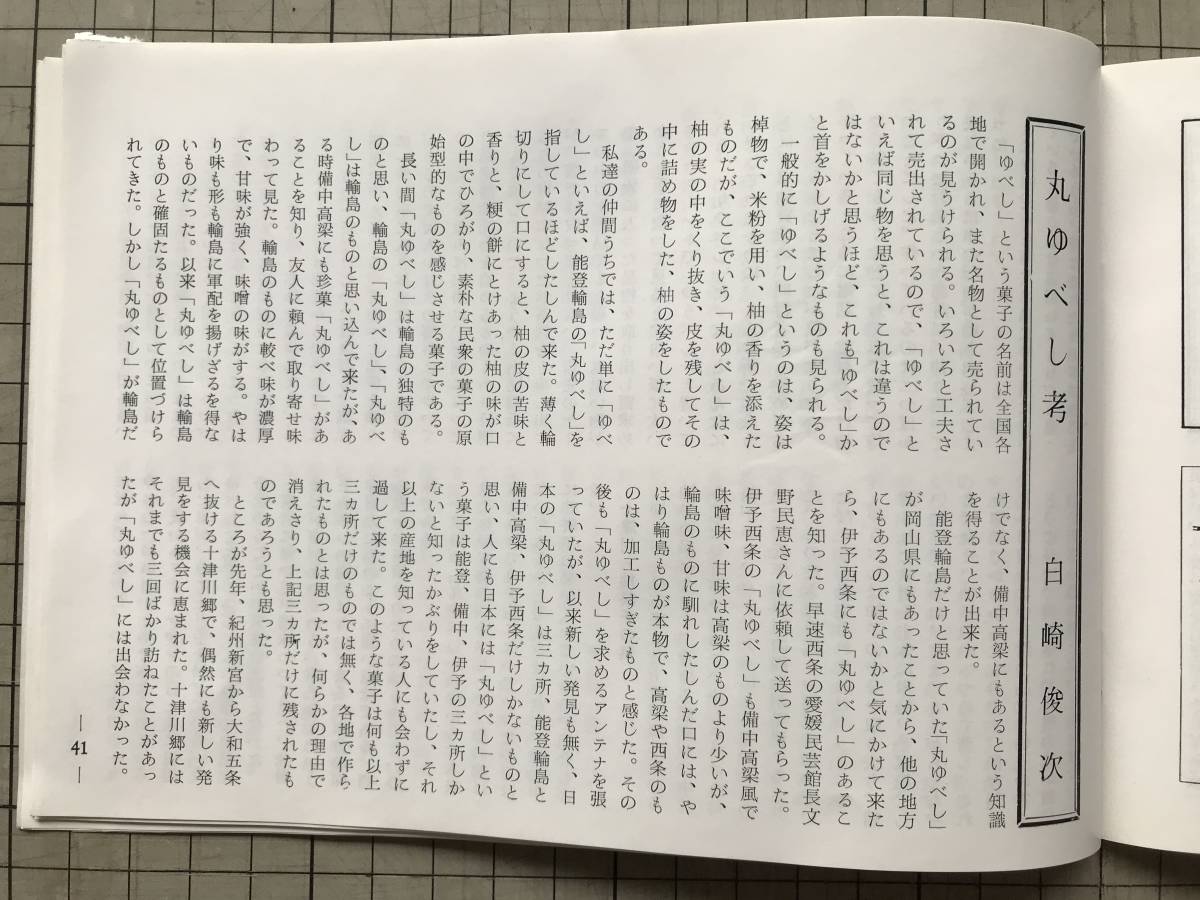 丸ゆべし考　白崎俊次
「ゆべし」という菓子の名前は全国各
地で開かれ、また名物として売られてい
るのが見うけられる。いろいろと工夫さ
れて売出されているので、「ゆべし」と
いえば同じ物を思うと、これは違うので
はないかと思うほど、これも「ゆべし」か
と首をかしげるようなものも見られる。
一般的に「ゆべし」というのは、姿は
棹物で、米粉を用い、柚の香りを添えた
ものだが、ここでいう「丸ゆべし」は、
柚の実の中をくり抜き、皮を残してその
中に詰め物をした、柚の姿をしたもので
ある。
私達の仲間うちでは、ただ単に「ゆべ
し」といえば、能登輪島の「丸ゆべし」を
指しているほどしたしんで来た。薄く輪
切りにして口にすると、柚の皮の苦味と
香りと、粳の餅にとけあった柚の味が口
の中でひろがり、素朴な民衆の菓子の原
始型的なものを感じさせる菓子である。
長い間「丸ゆべし」は輪島の独特のも
のと思い、輪島の「丸ゆべし」、「丸ゆべ
し」は輪島のものと思い込んで来たが、あ
る時備中高梁にも珍菓「丸ゆべし」があ
ることを知り、友人に頼んで取り寄せ味
わって見た。輪島のものに較べ味が濃厚
で、甘味が強く、味噌の味がする。やは
り味も形も輪島に軍配を揚げざるを得な
いものだった。以来「丸ゆべし」は輪島
のものと確固たるものとして位置づけら
れてきた。しかし「丸ゆべし」が輪島だ
けでなく、備中高梁にもあるという知識
を得ることが出来た。
能登輪島だけと思っていた「丸ゆべし」
が岡山県にもあったことから、他の地方
にもあるのではないかと気にかけて来た
ら、伊予西条にも「丸ゆべし」のあるこ
とを知った。早速西条の愛媛民芸館長文
野民恵さんに依頼して送ってもらった。
伊予西条の「丸ゆべし」も備中高梁風で
味噌味、甘味は高梁のものより少いが、
輪島のものに馴れしたしんだ口には、や
はり輪島ものが本物で、高梁や西条のも
のは、加工しすぎたものと感じた。その
後も「丸ゆべし」を求めるアンテナを張
っていたが、以来新しい発見も無く、日
本の「丸ゆべし」は三カ所、能登輪島と
備中高梁、伊予西条だけしかないものと
思い、人にも日本には「丸ゆべし」とい
う菓子は能登、備中、伊予の三カ所しか
ないと知ったかぶりをしていたし、それ
以上の産地を知っている人にも会わずに
過して来た。このような菓子は何も以上
三カ所だけのものでは無く、各地で作ら
れたものとは思ったが、何らかの理由で
消えさり、上記三カ所だけに残されたも
のであろうとも思った。
ところが先年、紀州新宮から大和五条
へ抜ける十津川郷で、偶然にも新しい発
見をする機会に恵まれた。十津川郷には
それまでも三回ばかり訪ねたことがあっ
たが「丸ゆべし」には出会わなかった。
― 41 ―